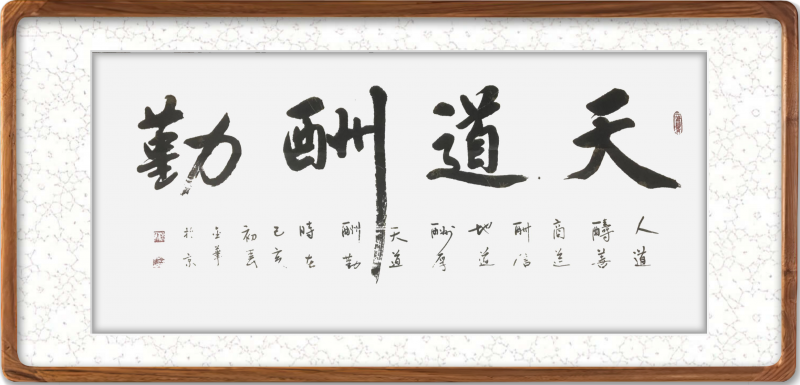 天道酬勤
人道
酬善
商道
酬信
地道
酬厚
天道
酬勤
時在
己亥
初春
金華
於京